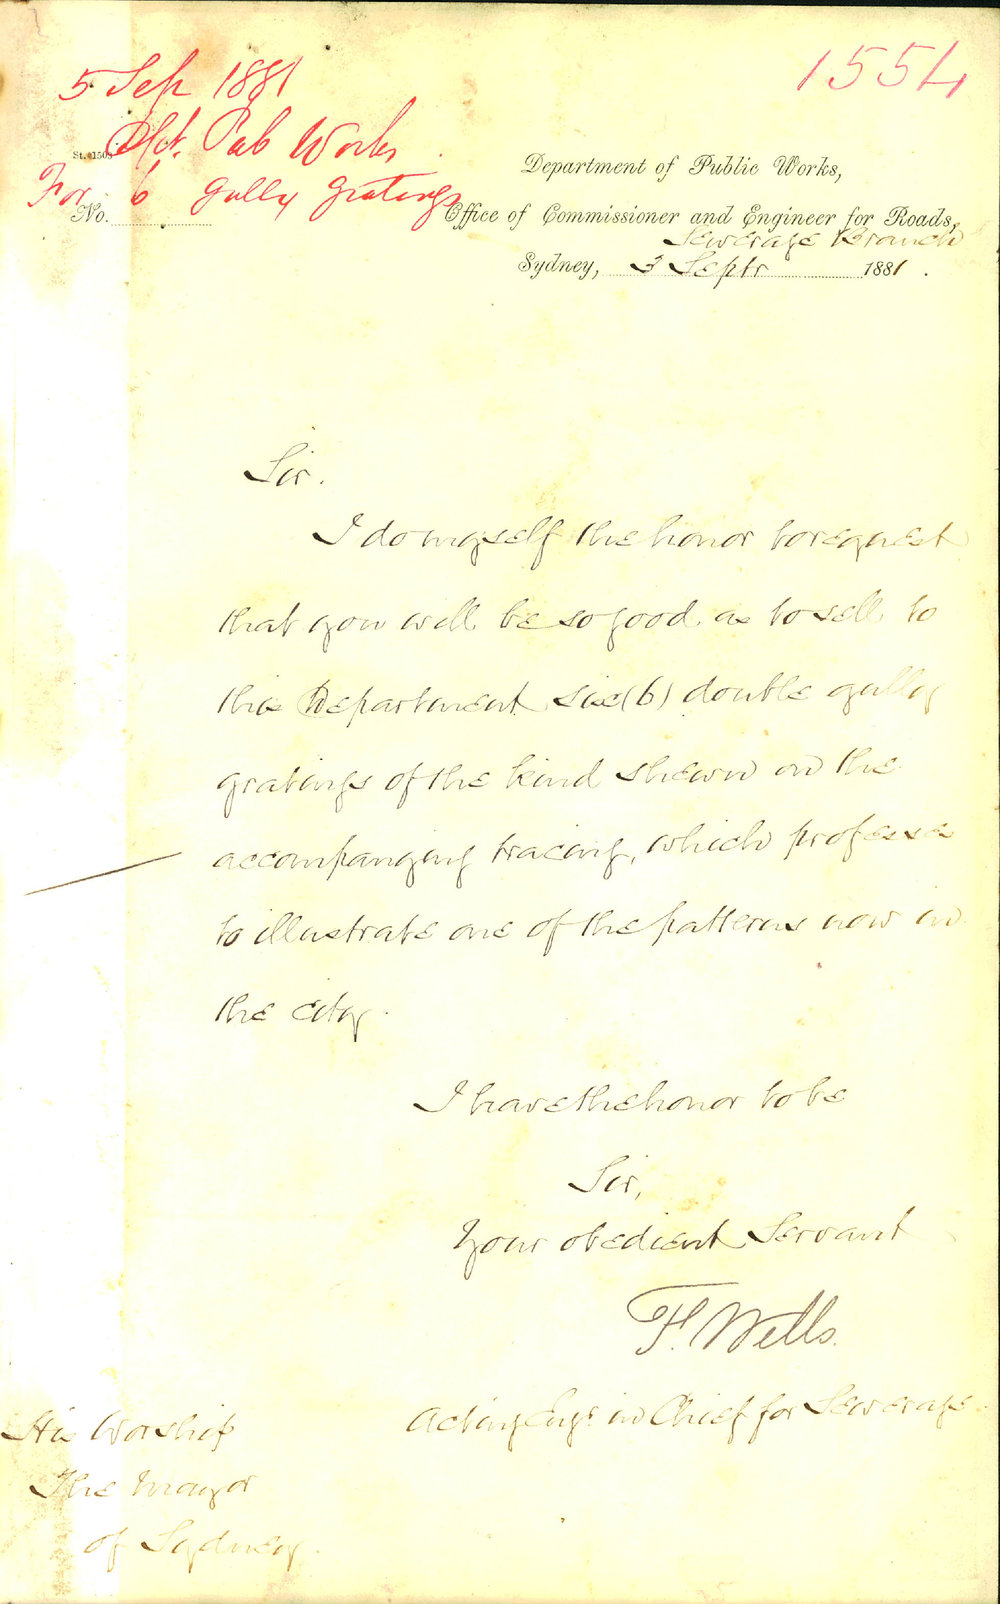 5 Sep 1881
1554
St. 1508
Dept. Pub Works
For 6 gully gratings
No.
Department of Public Works,
Office of Commissioner and Engineer for Roads,
Sewerage Branch
Sydney, 3 Septr 1881.
Sir.
I do myself the honor to request
that you will be so good as to sell to
this Department six (6) double gully
gratings of the kind shewn on the
accompanying tracing, which professes
to illustrate one of the patterns now in
the city.
I have the honor to be
Sir,
Your obedient Servant
F. Wells.
Acting Engr. in Chief for Sewerage.
His Worship
The Mayor
of Sydney.